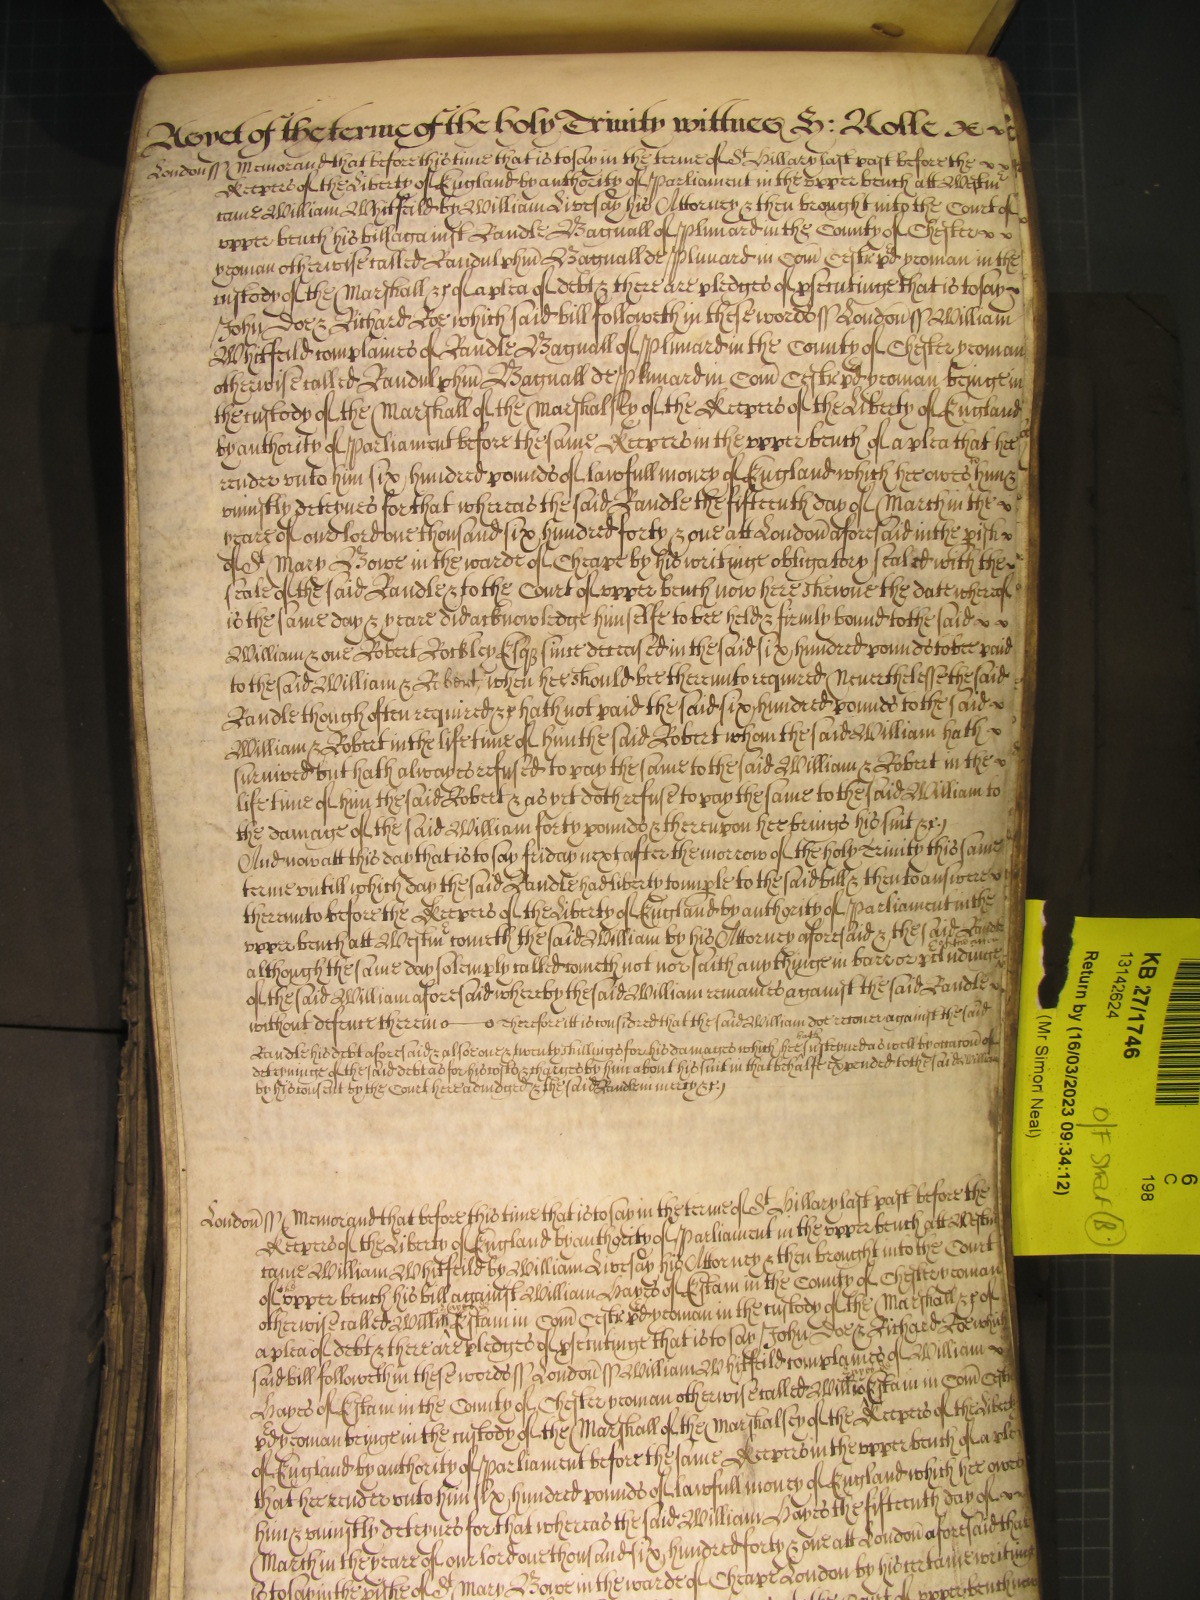 Aspect of the terme of the holy Trinity wittnes H: Rolle &c
London ss Memorand that before this time that is to say in the terme of St Hillary last past before the
Keepers of the Liberty of England by authority of Parliament in the upper bench att Westm
came William Whitfeild by William Livesay his Attorney & then brought into the Court of
upper bench his bill against Randle Bagnall of in the County of Chester
yeoman otherwise called Randulphm Bagnall de in Com Cestr pd yeoman in the
custody of the Marshall &c of a plea of debt & there are pledges of psecutinge that is to say
John Doe & Richard Roe which said bill followeth in these words ss London ss William
Whitfeild complaines of Randle Bagnall of in the County of Chester yeoman
otherwise called Randulphm Bagnall de in Com Cestr pd yeoman beinge in
the custody of the Marshall of the Marshalsey of the Keepers of the Liberty of England
by authority of Parliament before the same Keepers in the upper bench of a plea that hee
render unto him six hundred pounds of lawfull money of England which hee owes him &
uniustly deteynes for that whereas the said Randle the fifteenth day of March in the
yeare of our lord one thousand six hundred forty & one att London aforesaid in the pish
of St Mary Bowe in the warde of Cheape by his writinge obligatory sealed with the
seale of the said Randle & to the Court of upper bench now here shewne the date whereof
is the same day & yeare did acknowledge himselfe to bee held & firmly bound to the said
William & one Robert Rockley Esqr since deceased in the said six hundred pounds to bee paid
to the said William & Robert when hee should bee thereunto required Neverthelesse the said
Randle though often required &c hath not paid the said six hundred pounds to the said
William & Robert in the life time of him the said Robert whom the said William hath
survived but hath alwayes refused to pay the same to the said William & Robert in the
life time of him the said Robert & as yet doth refuse to pay the same to the said William to
the damage of the said William forty pounds & thereupon hee brings his suit &c
And now att this day that is to say friday next after the morrow of the holy Trinity this same
terme untill which day the said Randle had liberty to imple to the said bill & then to answere
thereunto before the Keepers of the Liberty of England by authority of Parliament in the
upper bench att Westm cometh the said William by his Attorney aforesaid & the said Randle
although the same day solemply called cometh not nor saith any thinge in barr or pcludinge
of the said William aforesaid whereby the said William remaines against the said Randle
without defence therein Therefore itt is considred that the said William doe recover against the said
Randle his debt aforesaid & alsoe one & twenty shillings for his damages which hee hath susteyned as well by occacon of
deteyninge of the said debt as for his costs & charges by him about his suit in that behalfe expended to the said William
by his consent by the Court here adiudged & the said Randle in mercy &c
London ss Memorand that before this time that is to say in the terme of St Hillary last past before the
Keepers of the Liberty of England by authority of Parliament in the upper bench att Westm
came William Whitfeild by William Livesay his Attorney & then brought into the Court
of upper bench his bill against William Hayes of Estam in the County of Chester yeoman
otherwise called Willm Hayes de Estam in Com Cestr pd yeoman in the custody of the Marshall &c of
a plea of debt & there are pledges of psecutinge that is to say John Doe & Richard Roe which
said bill followeth in these words ss London ss William Whitfeild complaines of William
Hayes of Estam in the County of Chester yeoman otherwise called Willm Hayes de Estam in Com Cestr
pd yeoman beinge in the custody of the Marshall of the Marshalsey of the Keepers of the Liberty
of England by authority of Parliament before the same Keepers in the upper bench of a plea
that hee render unto him six hundred pounds of lawfull money of England which hee owes
him & uniustly deteynes for that whereas the said William Hayes the fifteenth day of
March in the yeare of our lord one thousand six hundred forty & one att London aforesaid that
is to say in the pishe of St Mary Bowe in the warde of Cheape London by his certaine writinge
upper bench now
KB 27/1746
13142624
Return by (16/03/2023 09:34:12)
(Mr Simon Neal)
6
C
198
O/F Start (B)